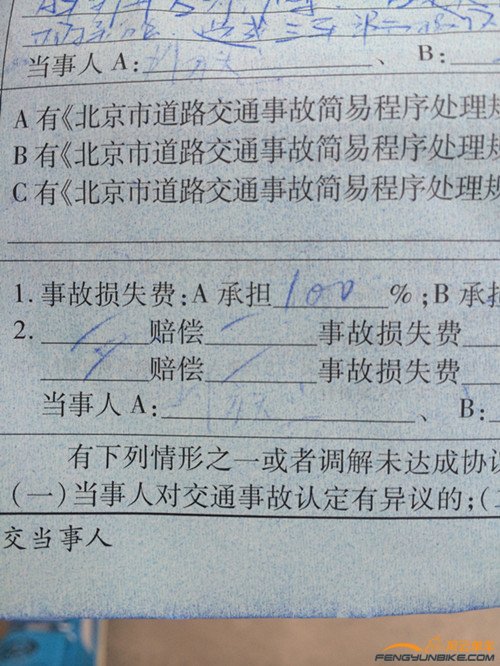 当事人 A: 、 B:
A 有《北京市道路交通事故简易程序处理规
B 有《北京市道路交通事故简易程序处理规
C 有《北京市道路交通事故简易程序处理规
1. 事故损失费:A 承担 100 %;B 承担
2. 赔偿 事故损失费
赔偿 事故损失费
当事人 A: 、 B:
有下列情形之一或者调解未达成协议
(一)当事人对交通事故认定有异议的;(二
交当事人
FENGYUNBIKE.COM